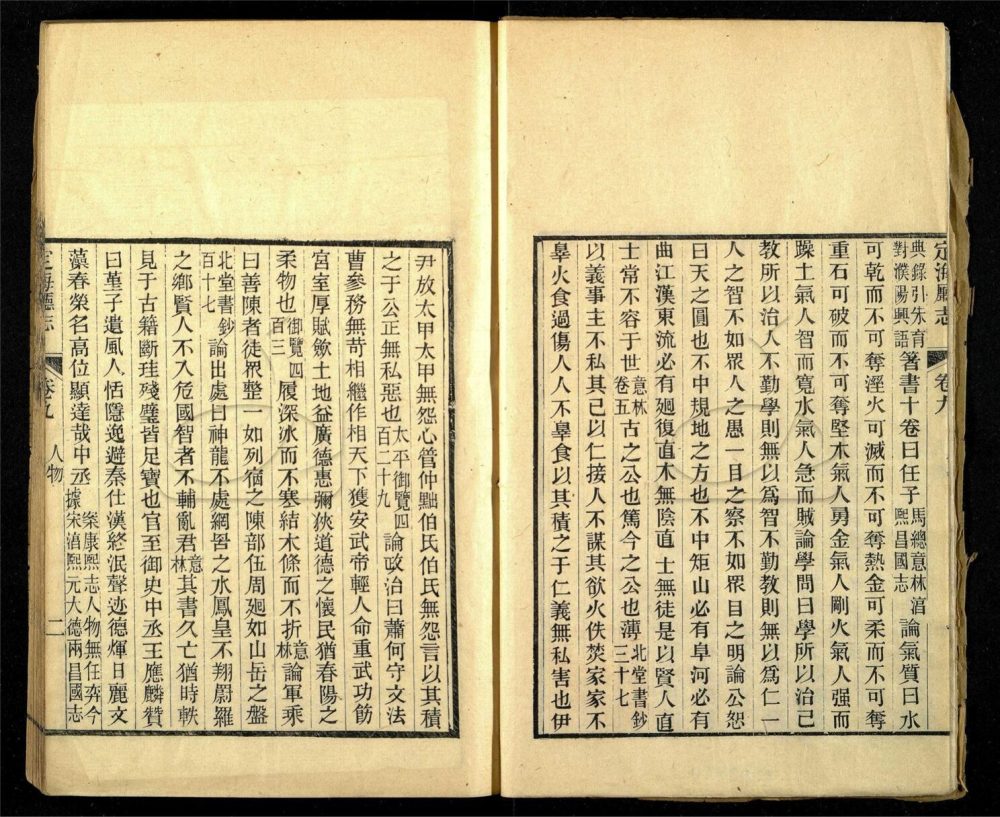 定海廳志 卷九
典錄引朱育對濮陽興語 箸書十卷曰任子 馬總意林㴑熙昌國志 論氣質曰水
可乾而不可奪溼火可滅而不可奪熱金可柔而不可奪
重石可破而不可奪堅木氣人勇金氣人剛火氣人强而
躁土氣人智而寬水氣人急而賊論學問曰學所以治己
教所以治人不勤學則無以爲智不勤教則無以爲仁一
人之智不如眾人之愚一目之察不如眾目之明論公恕
曰天之圓也不中規地之方也不中矩山必有阜河必有
曲江漢東流必有廻復直木無陰直士無徒是以賢人直
士常不容于世 意林卷五 古之公也篤今之公也薄 北堂書鈔三十七
以義事主不私其己以仁接人不謀其欲火佚焚家家不
辠火食過傷人人不辠食以其積之于仁義無私害也伊
尹放太甲太甲無怨心管仲黜伯氏伯氏無怨言以其積
之于公正無私惡也 太平御覽四百二十九 論政治曰蕭何守文法
曹參務無苛相繼作相天下獲安武帝輕人命重武功飾
宮室厚賦斂土地益廣德惠彌狹道德之懷民猶春陽之
柔物也 御覽四百三 履深冰而不寒結木條而不折 意林 論軍乘
曰善陳者徒眾整一如列宿之陳部伍周廻如山岳之盤
北堂書鈔百十七 論出處曰神龍不處網罟之水鳳皇不翔罻羅
之鄉賢人不入危國智者不輔亂君 意林 其書久亡猶時軼
見于古籍斷珪殘璧皆足寶也官至御史中丞王應麟贊
曰堇子遺風人恬隱逸避秦仕漢終泯聲迹德煇日麗文
藻春榮名高位顯達哉中丞 案康熙志人物無任弈今據宋㴑熙元大德兩昌國志
定海廳志 卷九 人物 二